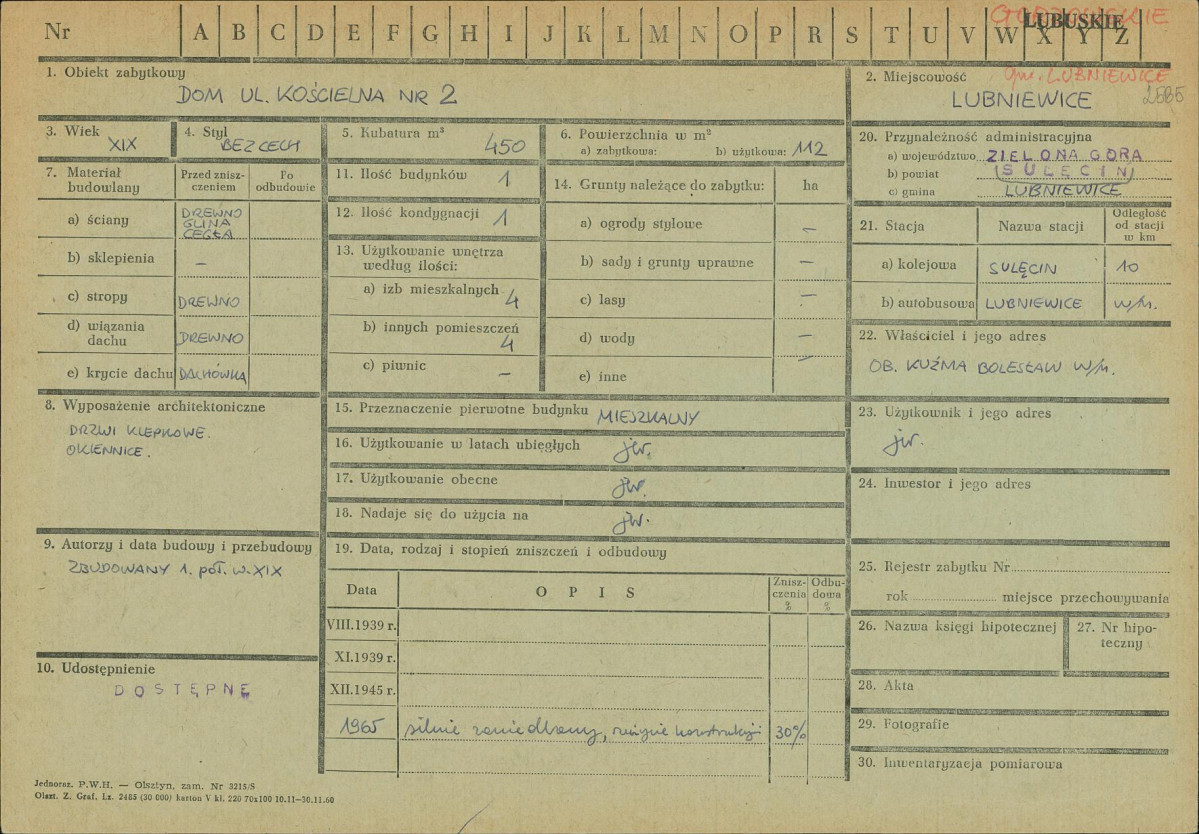 Nr A B C D E F G H I J K L M N O P R S T U V W X Y Z
GORZOWSKIE
LUBUSKIE
1. Obiekt zabytkowy
DOM UL. KOŚCIELNA NR 2
2. Miejscowość
gm. LUBNIEWICE
LUBNIEWICE
3. Wiek
XIX
4. Styl
BEZ CECH
5. Kubatura m³
450
6. Powierzchnia w m²
a) zabytkowa: b) użytkowa: 112
7. Materiał budowlany
Przed znisz-
czeniem
Po
odbudowie
a) ściany
DREWNO
GLINA
CEGŁA
b) sklepienia –
c) stropy DREWNO
d) wiązania
dachu DREWNO
e) krycie dachu DACHÓWKA
8. Wyposażenie architektoniczne
DRZWI KLEPKOWE.
OKIENNICE.
9. Autorzy i data budowy i przebudowy
ZBUDOWANY 1. POŁ. W. XIX
10. Udostępnienie
DOSTĘPNE
11. Ilość budynków 1
12. Ilość kondygnacji 1
13. Użytkowanie wnętrza
według ilości:
a) izb mieszkalnych 4
b) innych pomieszczeń
4
c) piwnic –
14. Grunty należące do zabytku: ha
a) ogrody stylowe –
b) sady i grunty uprawne –
c) lasy –
d) wody –
e) inne –
15. Przeznaczenie pierwotne budynku MIESZKALNY
16. Użytkowanie w latach ubiegłych jw.
17. Użytkowanie obecne jw.
18. Nadaje się do użycia na jw.
19. Data, rodzaj i stopień zniszczeń i odbudowy
Data OPIS
Znisz-
czenia
%
Odbu-
dowa
%
VIII.1939 r.
XI.1939 r.
XII.1945 r.
1965 silnie zaniedbany, 30%
20. Przynależność administracyjna
a) województwo ZIELONA GÓRA
b) powiat (SULĘCIN)
c) gmina LUBNIEWICE
21. Stacja Nazwa stacji
Odległość
od stacji
w km
a) kolejowa SULĘCIN 10
b) autobusowa LUBNIEWICE w/m.
22. Właściciel i jego adres
OB. KUŹMA BOLESŁAW W/m.
23. Użytkownik i jego adres
jw.
24. Inwestor i jego adres
25. Rejestr zabytku Nr
rok miejsce przechowywania
26. Nazwa księgi hipotecznej
27. Nr hipo-
teczny
28. Akta
29. Fotografie
30. Inwentaryzacja pomiarowa
Jednoraz. P.W.H. — Olsztyn, zam. Nr 3215/S
Olszt. Z. Graf. Lz. 2485 (30 000) karton V kl. 220 70x100 10.11—30.11.60